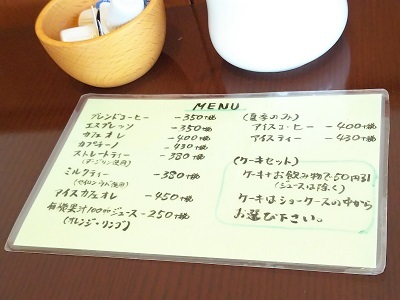 MENU
ブレンドコーヒー －350
エスプレッソ －350
カフェオレ －400
カプチーノ －430
ストレートティー －380
(ダージリン使用)
ミルクティー －380
(セイロン・ウバ使用)
アイスカフェオレ －450
有機果汁100%ジュース－250
(オレンジ・リンゴ)
(夏季のみ)
アイスコーヒー －400
アイスティー －430
(ケーキセット)
ケーキ+お飲み物で50円引
(ジュースは除く)
ケーキはショーケースの中から
お選び下さい。